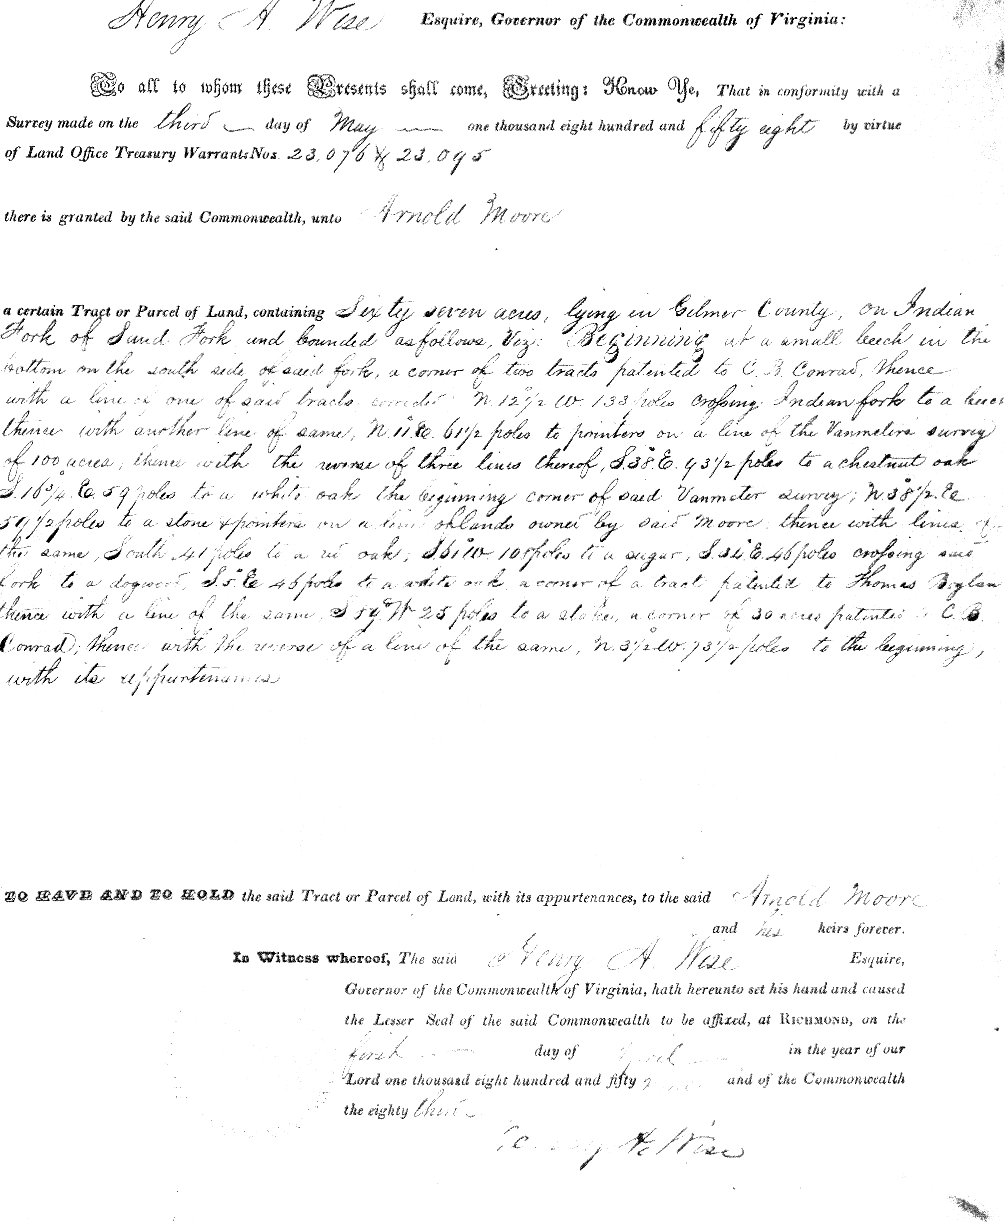 Henry A. Wise Esquire, Governor of the Commonwealth of Virginia:
To all to whom these Presents shall come, Greeting: Know Ye, That in conformity with a
Survey made on the third day of May one thousand eight hundred and fifty eight by virtue
of Land Office Treasury Warrants Nos. 23,076 & 23,095
there is granted by the said Commonwealth, unto Arnold Moore
a certain Tract or Parcel of Land, containing Sixty seven acres, lying in Gilmer County, on Indian
Fork of Sand Fork and bounded as follows, Viz: Beginning at a small beech in the
bottom on the south side of said fork, a corner of two tracts patented to C. B. Conrad, thence
with a line of one of said tracts corrected N. 12 1/2 W. 133 poles crossing Indian fork to a beech
thence with another line of same, N. 11° E. 61 1/2 poles to pointers on a line of the Vanmeters survey
of 100 acres, thence with the reverse of three lines thereof, S. 38° E. 93 1/2 poles to a chestnut oak
S. 16 3/4° E. 59 poles to a white oak the beginning corner of said Vanmeter survey; N. 38 1/2° E
59 1/2 poles to a stone & pointers on a line of lands owned by said Moore thence with lines of
the same, South 41 poles to a red oak; S 61° W 108 poles to a sugar, S. 34° E. 46 poles crossing said
fork to a dogwood, S. 5° E 46 poles to a white oak a corner of a tract patented to Thomas Boylan
thence with a line of the same, S 59° W 25 poles to a stake, a corner of 30 acres patented C. B.
Conrad; thence with the reverse of a line of the same, N. 3 1/2° W. 73 1/2 poles to the beginning,
with its appurtenances
TO HAVE AND TO HOLD the said Tract or Parcel of Land, with its appurtenances, to the said Arnold Moore
and his heirs forever.
In Witness whereof, The said Henry A. Wise Esquire,
Governor of the Commonwealth of Virginia, hath hereunto set his hand and caused
the Lesser Seal of the said Commonwealth to be affixed, at RICHMOND, on the
first day of April in the year of our
Lord one thousand eight hundred and fifty and of the Commonwealth
the eighty third
Henry A. Wise